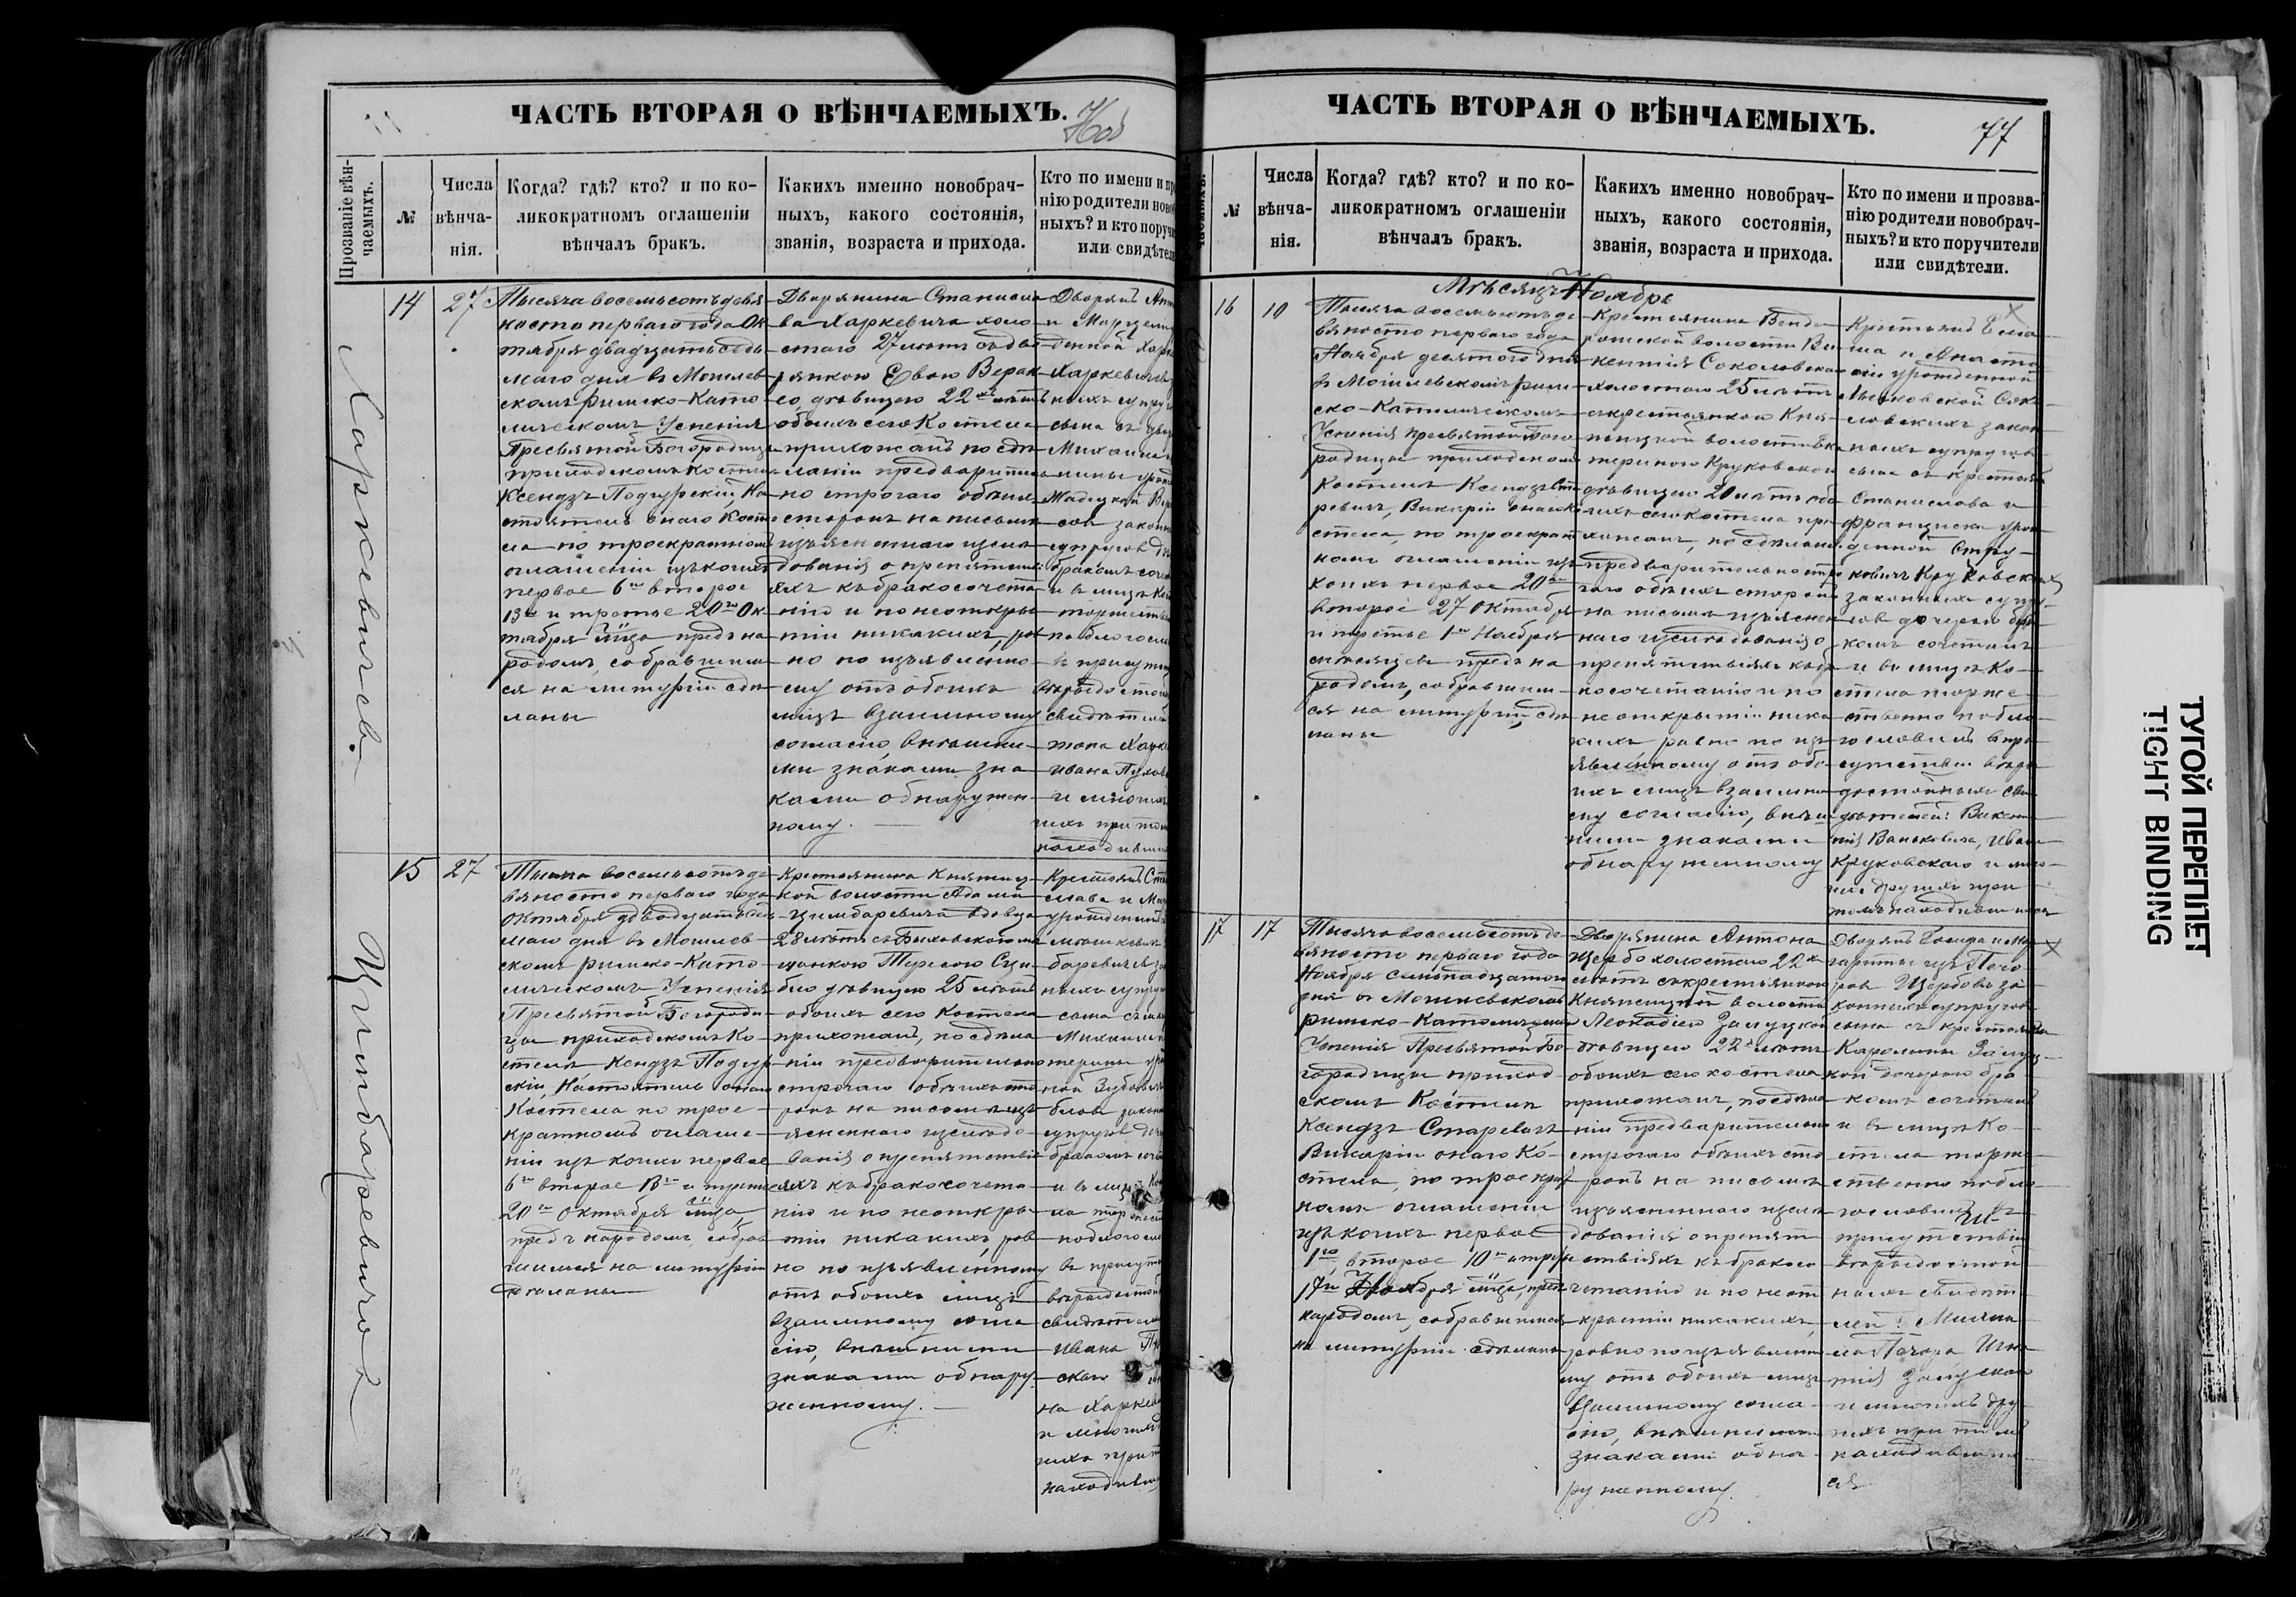 ЧАСТЬ ВТОРАЯ О ВѢНЧАЕМЫХЪ.
Ноя
Прозваніе вѣн-
чаемыхъ.
№
Числа
вѣнча-
нія.
Когда? гдѣ? кто? и по ко-
ликократномъ оглашеніи
вѣнчалъ бракъ.
Какихъ именно новобрач-
ныхъ, какого состоянія,
званія, возраста и прихода.
Кто по имени и про
нію родители новоб
ныхъ? и кто поручит
или свидѣтели
Харкевичъ.
14
27
Тысяча восемьсотъ девя
носто перваго года Ок
тября двадцать седь
маго дня въ Могилев
скомъ Римско-Като
лическомъ Успенія
Пресвятой Богородицы
приходскомъ костелѣ
Ксендзъ Подгурскій, На
стоятель онаго Косте
ла по троекратномъ
оглашеніи изъ коихъ
первое 6го второе
13го и третье 20го Ок
тября м-ца предъ на
родомъ, собравшим
ся на литургіи сдѣ
ланы
Дворянина Станисла
ва Харкевича холо
стаго 27 лѣтъ съ дво
рянкою Евою Верак
со дѣвицею 22хъ лѣтъ
обоихъ сего Костела
прихожанъ по сдѣ
ланіи предваритель
но строгаго обоихъ
сторонъ на письмѣ
изъясненнаго изслѣ
дованія о препятстві
яхъ къ бракосочета
нію и по неоткры
тіи никакихъ, рав
но по изъявленно
му отъ обоихъ
лицъ взаимному
согласію, внѣшни
ми знаками зна
ками обнаружен
ному.
Дворянъ Ант
и Марцели
денной Харк
Харкевичев
ныхъ супру
сына съ двор
Михаила
лины урожд
Жадецкой Вер
сов законн
супругов до
бракомъ соче
и въ лицѣ Ко
торжестве
поблагосл
въ присутст
вѣрыдостой
свидѣтелей
тона Харке
Ивана Пухов
и многихъ
гихъ при том
находивши
Цимбаревичъ
15
27
Тысяча восемьсотъ де
вяносто перваго года
Октября двадцать седь
маго дня въ Могилев
скомъ римско-Като
лическомъ Успенія
Пресвятой Богороди
цы приходскомъ Ко
стелѣ Ксендзъ Подгур
скій, Настоятель онаго
Костела по трое
кратномъ оглаше
ніи изъ коихъ первое
6го второе 13го и третье
20го Октября м-ца,
предъ народомъ собрав
шимся на литургіи
сдѣланы
Крестьянина Княжиц
кой волости Адама
Цимбаревича вдовца
28 лѣтъ съ Быховскою мѣ
щанкою Тересою Сци
біо дѣвицею 25 лѣтъ
обоихъ сего Костела
прихожанъ, по сдѣла
ніи предварительно
строгаго обоихъ сто
ронъ на письмѣ изъ
ясненнаго изслѣдо
ванія о препятстві
яхъ къ бракосочета
нію и по неоткры
тіи никакихъ, рав
но по изъявленному
отъ обоихъ лицъ
взаимному согла
сію, внѣшними
знаками обнару
женному.
Крестьянъ Ст
слава и Ма
урожденной
баревичъ за
ныхъ супруг
сына съ мѣщ
Михаила
терины уро
ной Зубович
законн
супругов доч
бракомъ соче
и въ лицѣ Ко
ла торжест
поблагосл
въ присутс
вѣрыдостой
свидѣтелей
Ивана
на Харкев
и многихъ
гихъ при т
находивш
ЧАСТЬ ВТОРАЯ О ВѢНЧАЕМЫХЪ.
77
№
Числа
вѣнча-
нія.
Когда? гдѣ? кто? и по ко-
ликократномъ оглашеніи
вѣнчалъ бракъ.
Какихъ именно новобрач-
ныхъ, какого состоянія,
званія, возраста и прихода.
Кто по имени и прозва-
нію родители новобрач-
ныхъ? и кто поручители
или свидѣтели.
Мѣсяцъ Ноябрь
16
10
Тысяча восемьсотъ де
вяносто перваго года
Ноября десятого дня
въ Могилевскомъ рим
ско-Католическомъ
Успенія пресвятой Бого
родицы приходскомъ
Костелѣ Ксендзъ Ста
ревичъ, Викарій онаго Ко
стела, по троекрат
номъ оглашеніи изъ
коихъ первое 20го
второе 27 Октября
и третье 1го Ноября
мѣсяцевъ предъ на
родомъ, собравшим
ся на литургіи, сдѣ
ланы
Крестьянина Венде
рожской волости Ви
кентія Соколовска
холостаго 25 лѣтъ
съ крестьянкою Кня
жицкой волости Ека
териною Круковской
дѣвицею 20 лѣтъ обо
ихъ сего костела при
хожанъ, по сдѣланіи
предварительно стро
гаго обоихъ сторонъ
на письмѣ изъяснен
наго изслѣдованія о
препятствіяхъ къ бра
косочетанію и по
неоткрытіи ника
кихъ, равно по изъ
явленному отъ обо
ихъ лицъ взаимно
му согласію, внѣш
ними знаками
обнаруженному
Крестьянъ
и Анаста
сіи урожденной
Соко
ловскихъ закон
ныхъ супругов
сына съ крестьян
Станислова и
Франциски урож
денной Стру
ковичъ Круковских
законныхъ супру
гов дочерью бра
комъ сочеталъ
и въ лицѣ Ко
стела торже
ственно побла
гословилъ въ при
сутствіи вѣры
достойныхъ сви
дѣтелей: Викен
тія Ваньковича, Ивана
Круковскаго и мно
гихъ другихъ при
томъ находившихся
17
17
Тысяча восемьсотъ де
вяносто перваго года
Ноября семнадцатого
дня въ Могилевскомъ
римско-Католическомъ
Успенія Пресвятой Бо
городицы приход
скомъ Костелѣ
Ксендзъ Старевичъ
Викарій онаго Ко
стела, по троекрат
номъ оглашеніи
изъ коихъ первое
1го второе 10го и третье
17го Ноября м-ца, предъ
народомъ, собравшимся
на литургіи сдѣланы
Дворянина Антона
Щербо холостаго 22хъ
лѣтъ съ крестьянкою
Княжицкой волости
Леокадіею Залуцкой
дѣвицею 22хъ лѣтъ
обоихъ сего костела
прихожанъ, по сдѣла
ніи предварительно
строгаго обоихъ сто
ронъ на письмѣ
изъясненнаго изслѣ
дованія о препят
ствіяхъ къ бракосо
четанію и по неот
крытіи никакихъ,
равно по изъявленно
му отъ обоихъ лицъ
взаимному согла
сію, внѣшними
знаками обна
руженному.
Дворянъ и Мар
гариты изъ Печо
ров Щербовъ за
конныхъ супругов
сына съ крестьянки
Каролины Залуц
кой дочерью бра
комъ сочеталъ
и въ лицѣ Ко
стела торже
ственно побла
гословилъ въ
присутствіи
вѣрыдостой
ныхъ свидѣте
лей: Михаи
ла Печора Игна
тія Залуцкаго
и многихъ дру
гихъ при томъ
находивших
ся
ТУГОЙ ПЕРЕПЛЕТ
TIGHT BINDING